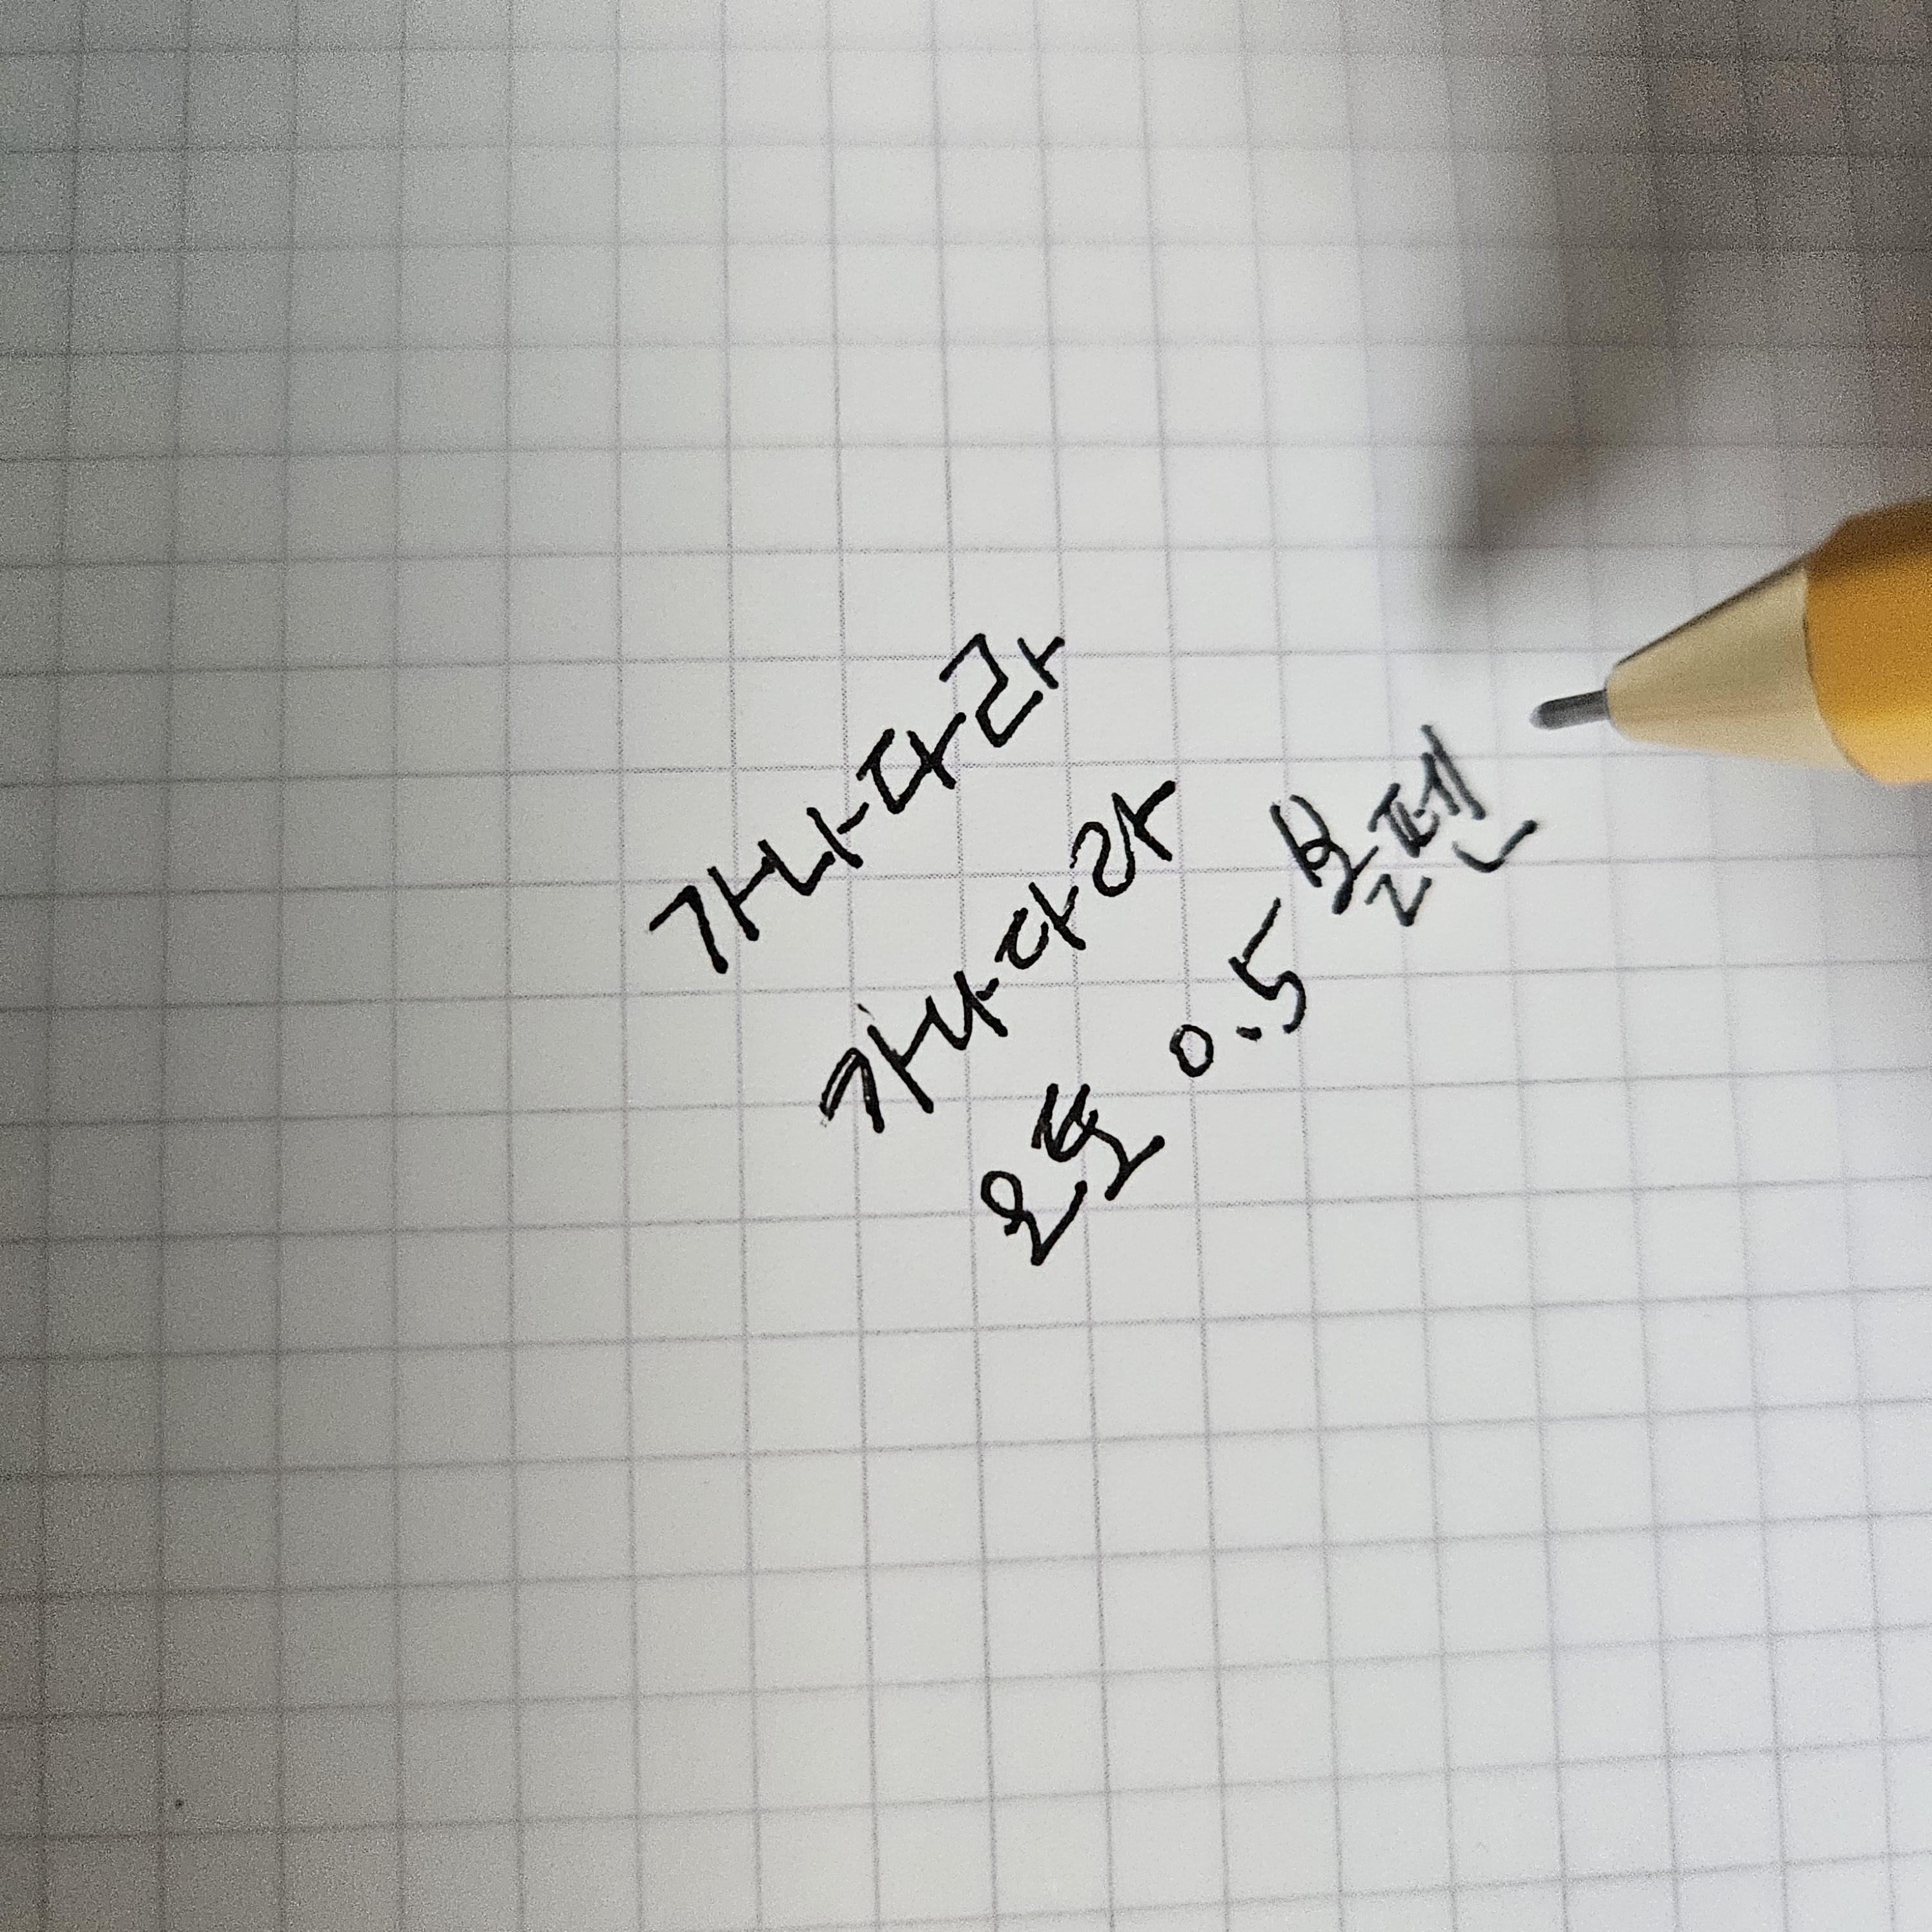 가나다라
가나다라
오토 0.5 볼펜